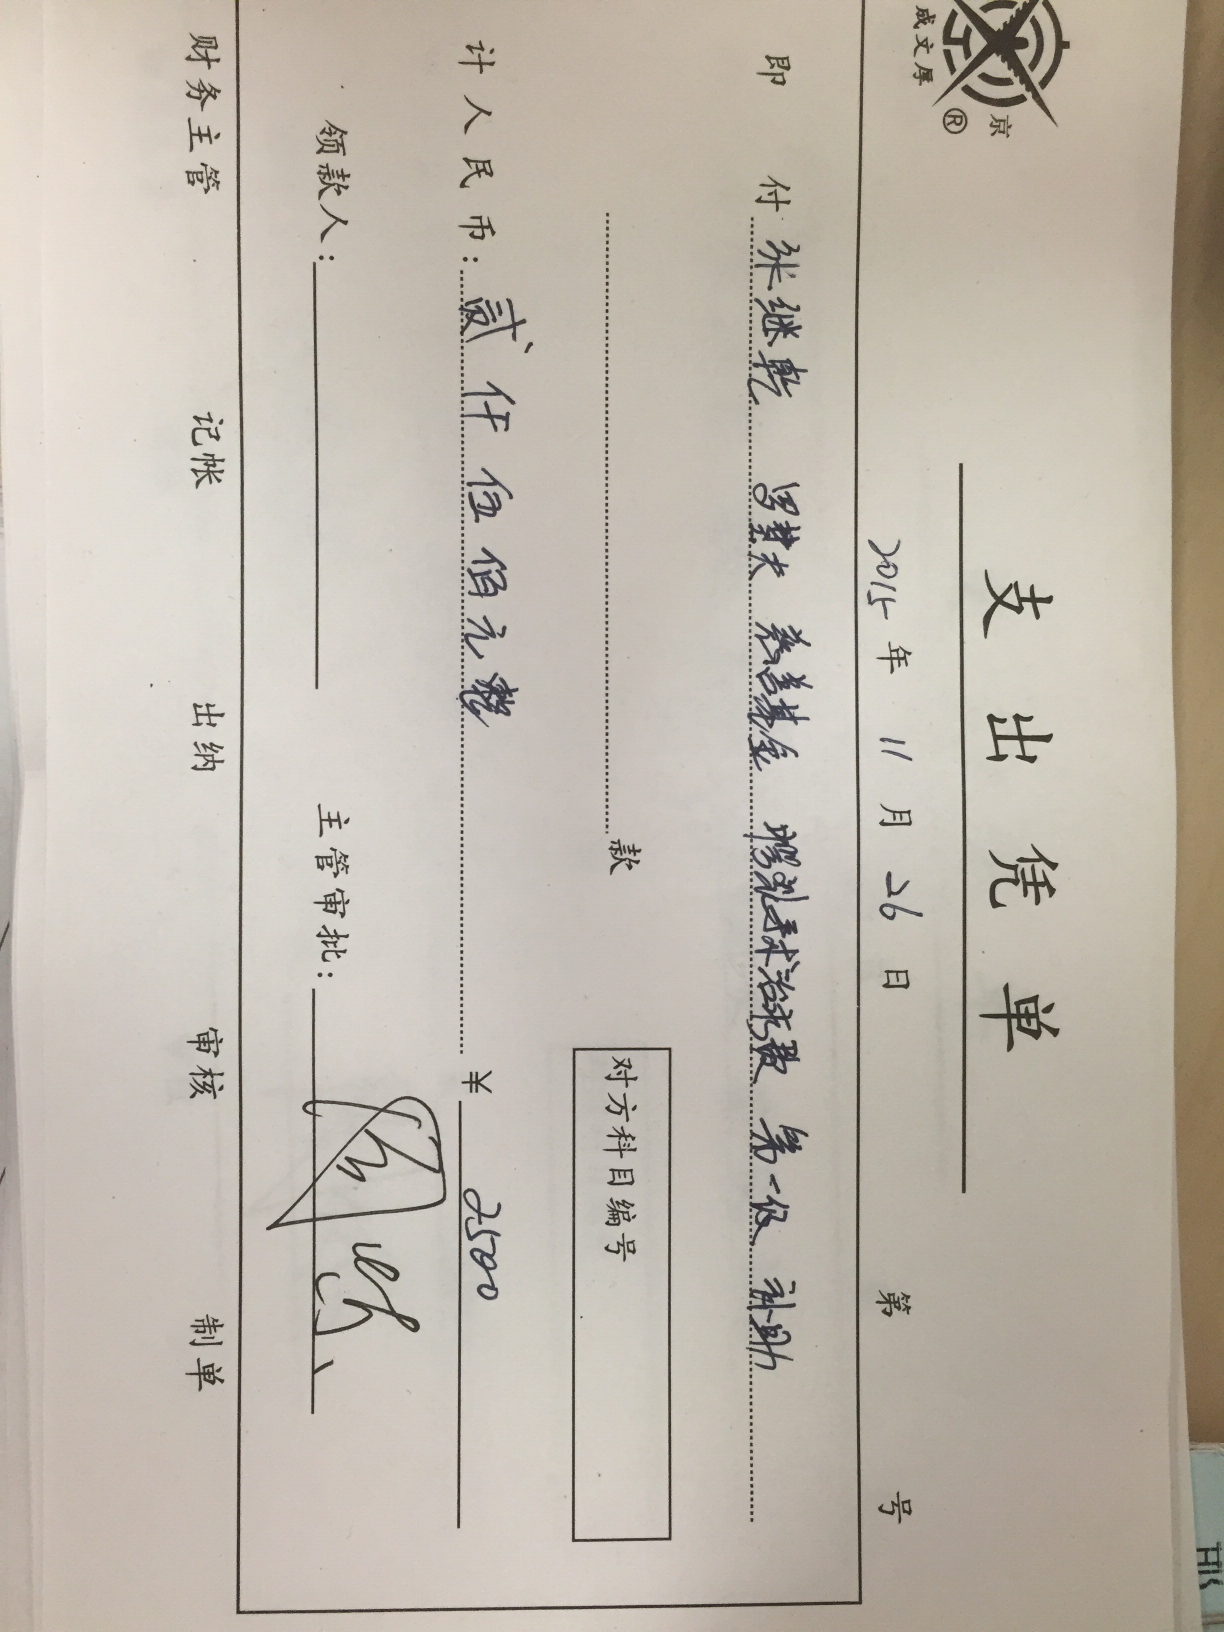 京
成文厚 ®
支出凭单
2015年 11月 26日 第 号
即 付 张继乾 罗梦夫 慈善基金 膀乳手术治疗费 第一仅 补助
款 对方科目编号
计人民币：贰仟伍佰元整 ¥ 2500
领款人： 主管审批：
财务主管 记帐 出纳 审核 制单